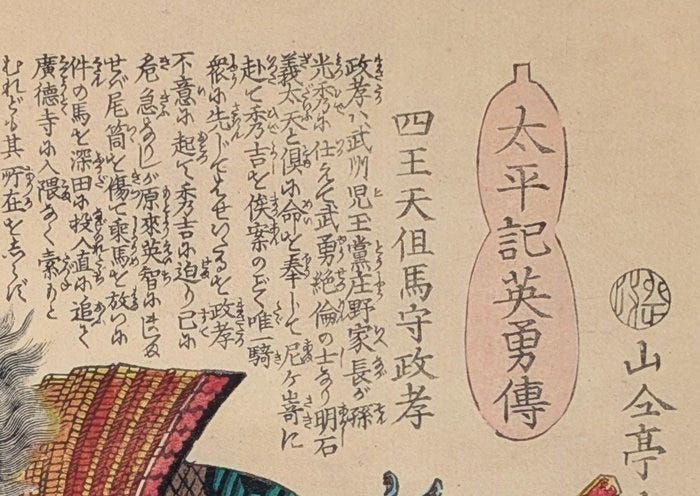 山仝亭
太平記英勇傳
四王天但馬守政孝
政孝ハ武州児玉黨庄野家長が孫
光秀に仕えて武勇絶倫の士なり明石
義太夫と倶に命を奉じて尼ヶ嵜に
赴て秀吉を俟案のごく唯一騎
衆に先じてはせいたるを政孝
不意に起て秀吉に迫り已に
危急なりしが原來英智に
せバ尾筒を傷て乗馬を放いに
件の馬を深田に投入直に追て
廣徳寺に入隈なく索ると
むれども其所在をしらず